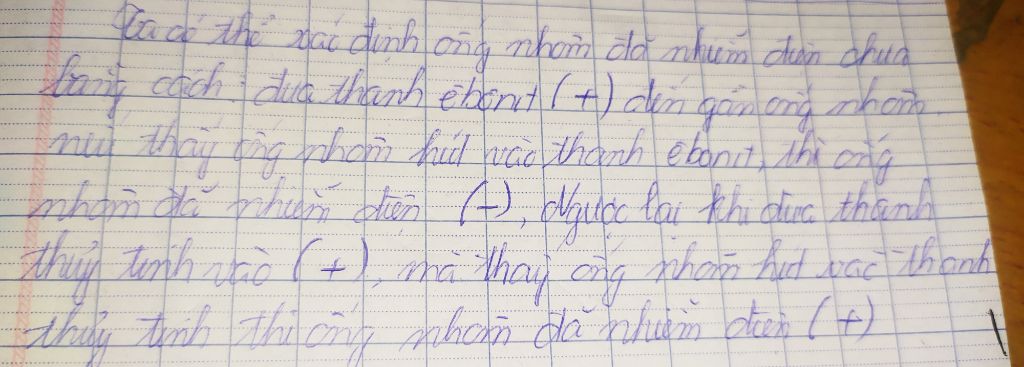 Ta có thể xác định ống nhôm đã nhiễm điện chưa
bằng cách: đưa thanh êbônit (+) đến gần ống nhôm
nếu thấy ống nhôm hút vào thanh êbônit, thì ống
nhôm đã nhiễm điện (-), Ngược lại khi đưa thanh
thuỷ tinh vào (+), mà thấy ống nhôm hút vào thanh
thuỷ tinh thì ống nhôm đã nhiễm điện (+)